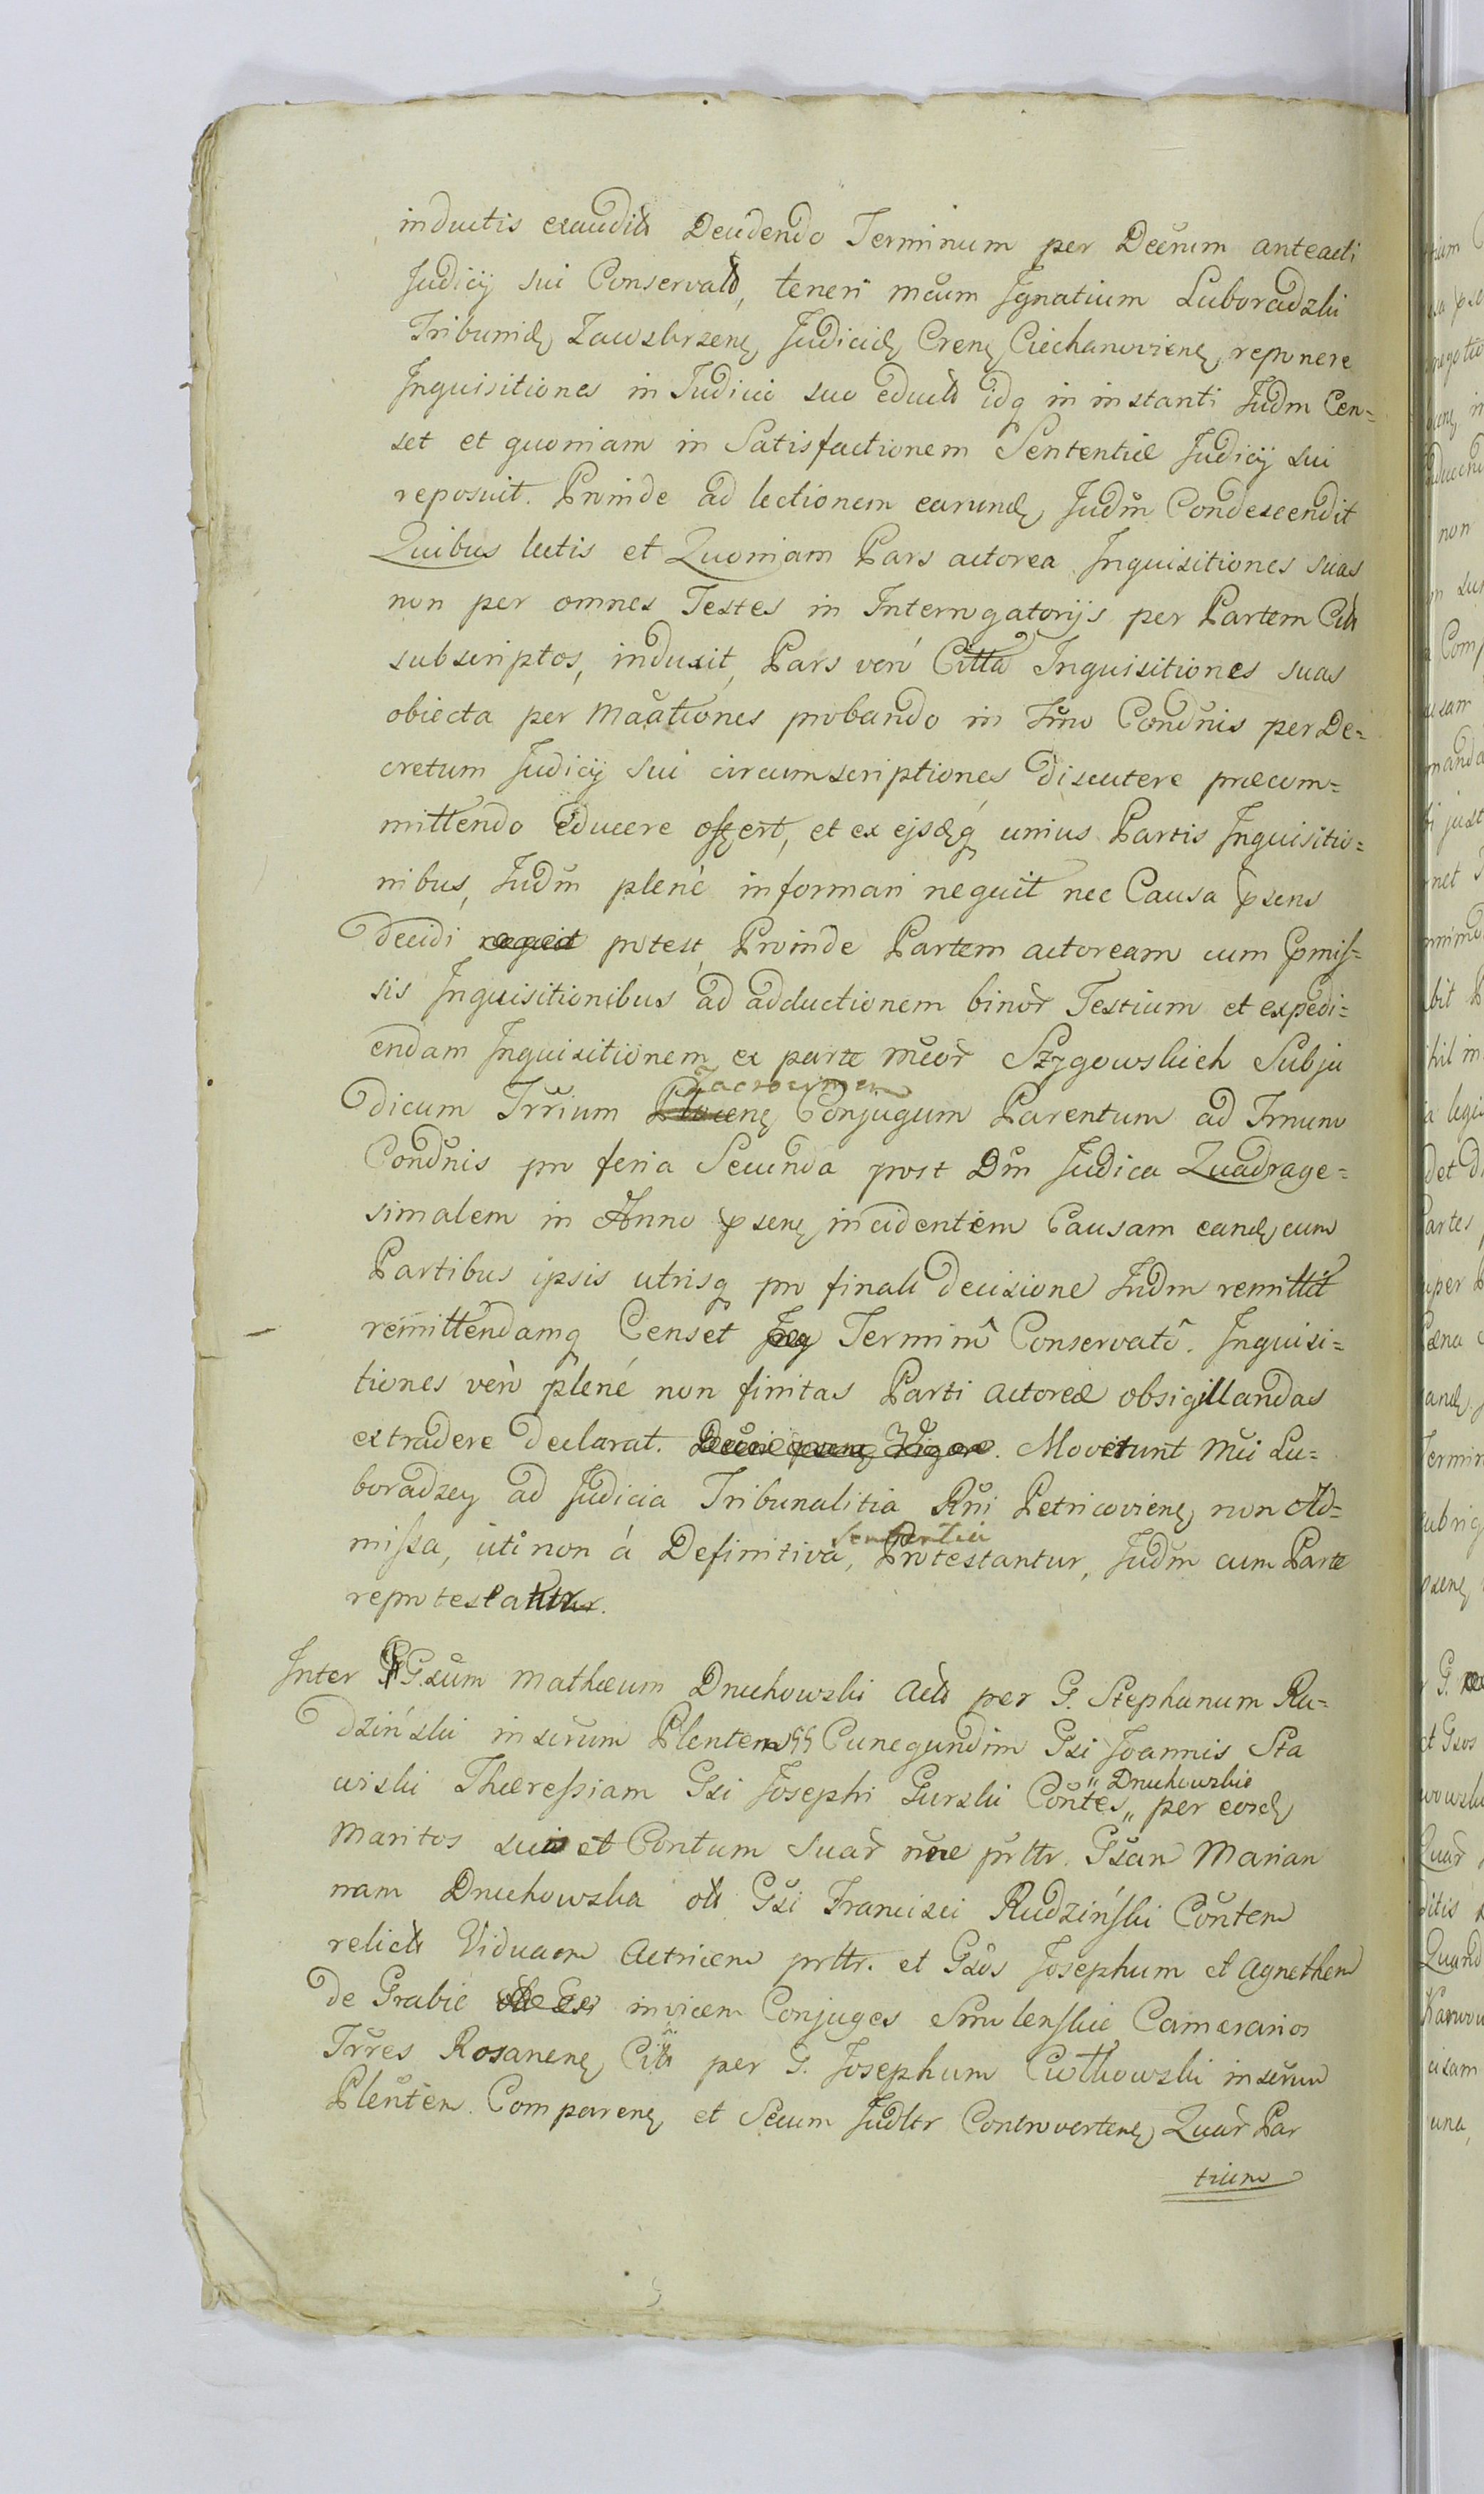 inductis exaudits Decidendo Terminum per Decrum anteacti
Judicij sui Conservats, teneri mcum Ignatium Luboradzki
Tribunid, Zawskrzene, Judicid, Crene, Ciechanoviene, reponere
Inquisitiones in Judicio suo educts idq in instanti Judm Cen=
set et quoniam in Satisfactionem Sententiæ Judicij sui
reposuit. Proinde ad lectionem earund, Judm Condescendit
Quibus lectis et Quoniam Pars actorea Inquisitiones suas
non per omnes Testes in Interrogatorijs per Partem Citt
subscriptos, induxit, Pars vero Citta Inquisitiones suas
obiecta per Maationes probando in Tmo Condnis per De=
cretum Judicij sui circumscriptiones discutere præcom=
mittendo educere offert, et ex unius Partis Inquisitio=
nibus, Judm plené informari nequit nec Causa psens
decidi potest, Proinde Partem actoream cum pmis=
sis Inquisitionibus ad adductionem binor Testium et expedi=
endam Inquisitionem ex parte mcor Szygowskich Subju
Zacrocimen
dicum Trrium Plocene, Conjugum Parentum ad Trmum
Condnis pro feria Secunda post Dm Judica Quadrage=
simalem in Anno psene, incidentem Causam eand, cum
Partibus ipsis utrisq pro finali decisione Judm remittit
remittendamq Censet Termino Conservato. Inquisi=
tiones vero plené non finitas Parti actoreæ obsigillandas
extradere declarat. Movetunt Mci Lu=
boradzcy ad Judicia Tribunalitia Rni Petricoviene, non Ad=
Sententia
missa, uti non á Definitiva, Protestantur, Judm cum Parte
reprotestantur.
Inter GGsum Mathæum Druchowski Acts per G. Stephanum Ru=
dziński inserum Plentem Cunegundim Gsi Joannis Sta
wiski Thæressiam Gsi Josephi Gurski Contes „ Druchowskie „ per eosd,
Maritos suos et Contum suar nne prttr. Gsan Marian
nam Druchowska ott Gsi Francisci Rudziński Contem
relicts Viduam Actricem prttr. et Gsos Josephum et Agnethem
de Grabie invicem Conjuges Smolenskie Camerarios
Trres Rosanene, Citt per G. Josephum Ciotkowski inserum
Plentem. Comparene, et Secum Judltr Controvertene, Quar Par
tium